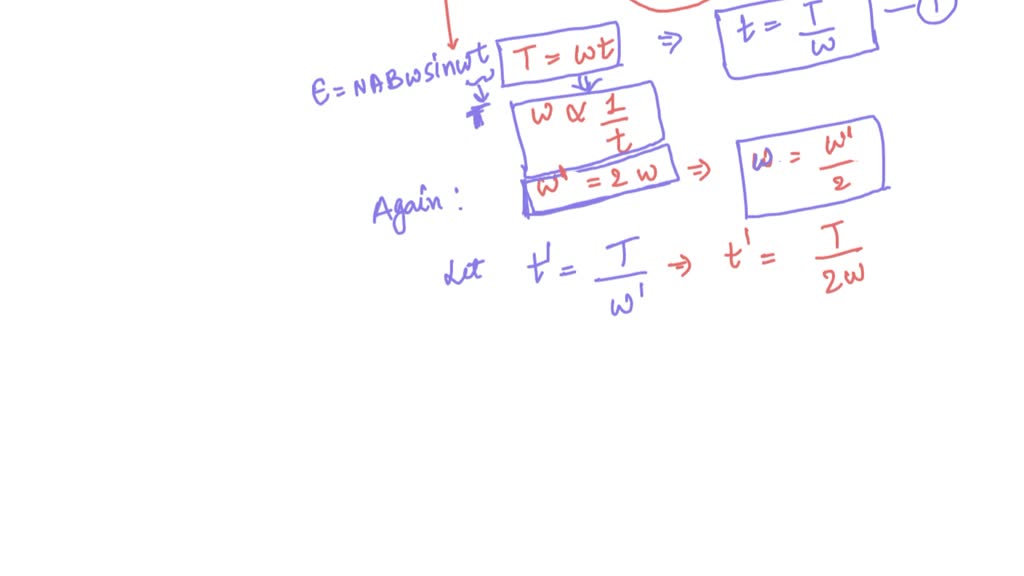 t = T/ω — ①
ε = NABωsinωt T = ωt ⇒
T
ω ∝ 1/t
Again: ω' = 2ω ⇒ ω = ω'/2
Let t' = T/ω' ⇒ t' = T/2ω